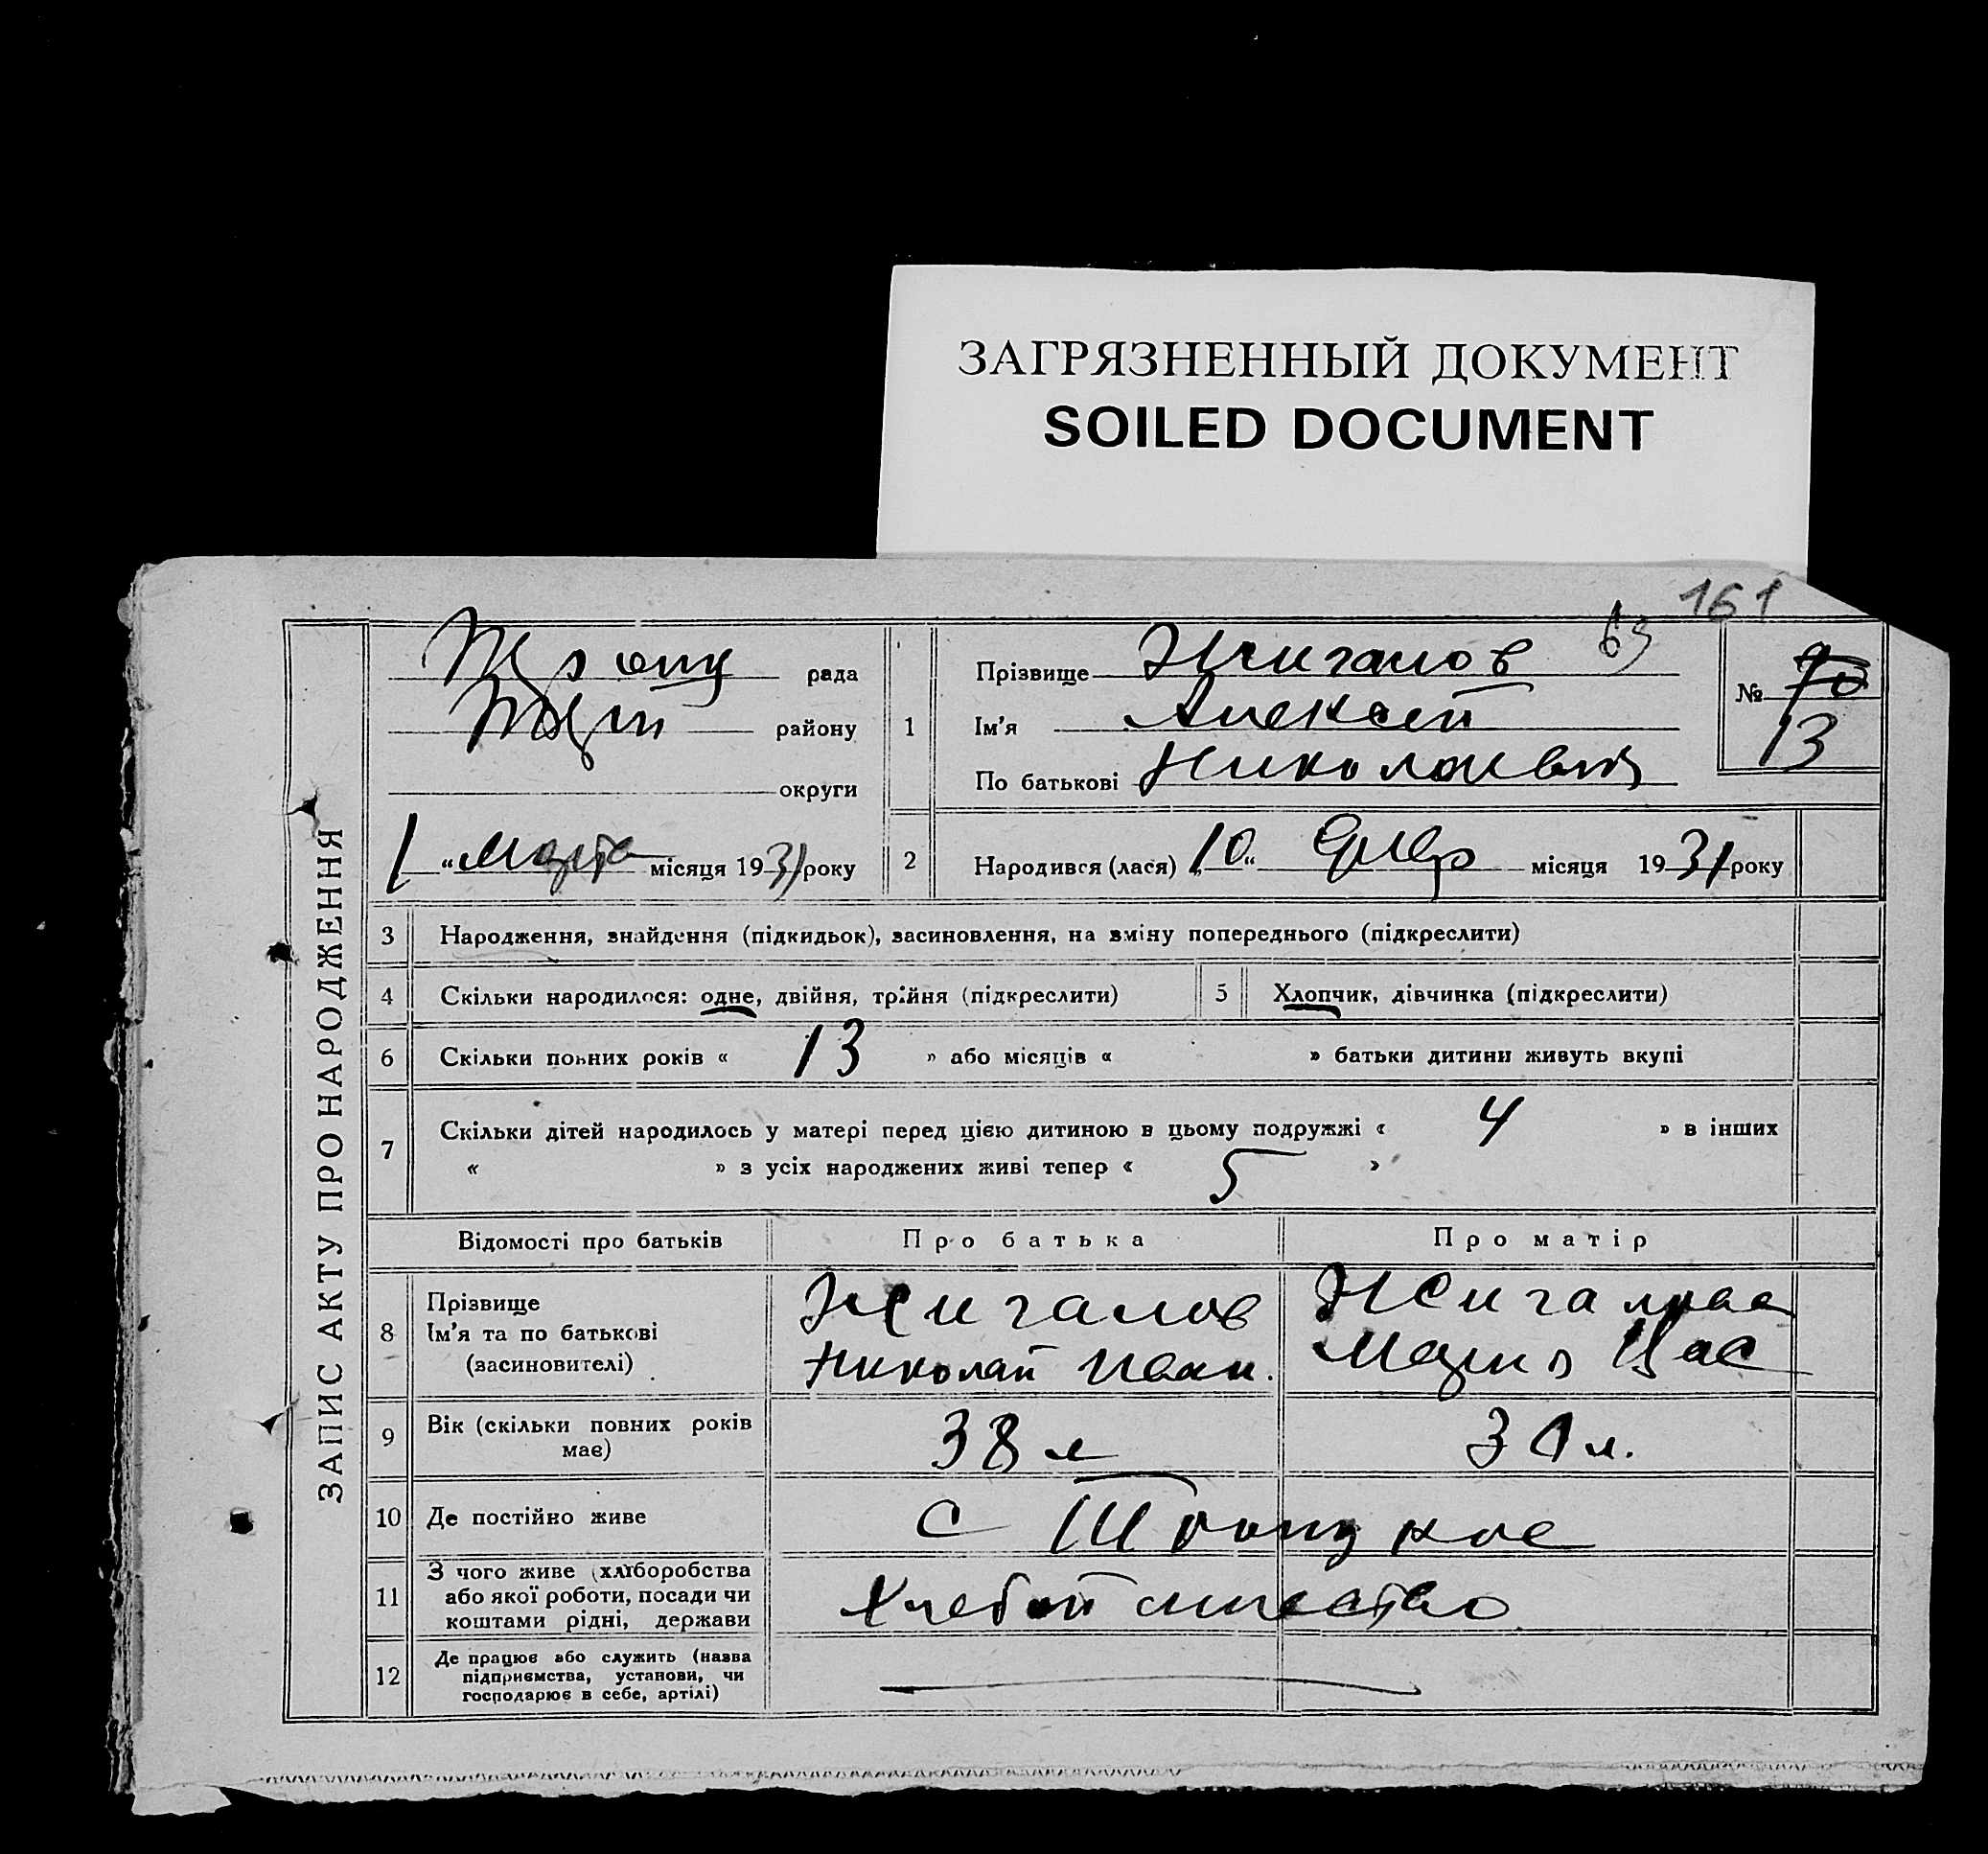 ЗАГРЯЗНЕННЫЙ ДОКУМЕНТ
SOILED DOCUMENT
161
63
ЗАПИС АКТУ ПРО НАРОДЖЕННЯ
рада
району
округи
1 „ Марта місяця 1931 року
1
Прізвище Жигалов
Ім'я Алексей
По батькові Николаевич
№ 70
13
2 Народився (лася) „10“ Янвр місяця 1931 року
3 Народження, знайдення (підкидьок), засиновлення, на зміну попереднього (підкреслити)
4 Скільки народилося: одне, двійня, трійня (підкреслити)
5 Хлопчик, дівчинка (підкреслити)
6 Скільки повних років « 13 » або місяців « » батьки дитини живуть вкупі
7 Скільки дітей народилось у матері перед цією дитиною в цьому подружжі « 4 » в інших
« » з усіх народжених живі тепер « 5 »
Відомості про батьків Про батька Про матір
8 Прізвище
Ім'я та по батькові
(засиновителі)
Жигалов
Николай Иван.
Жигалова
Мария Вас
9 Вік (скільки повних років
має)
38 л
30 л.
10 Де постійно живе
с Троицкое
11 З чого живе (хліборобства
або якої роботи, посади чи
коштами рідні, держави
12 Де працює або служить (назва
підприємства, установи, чи
господарює в себе, артілі)